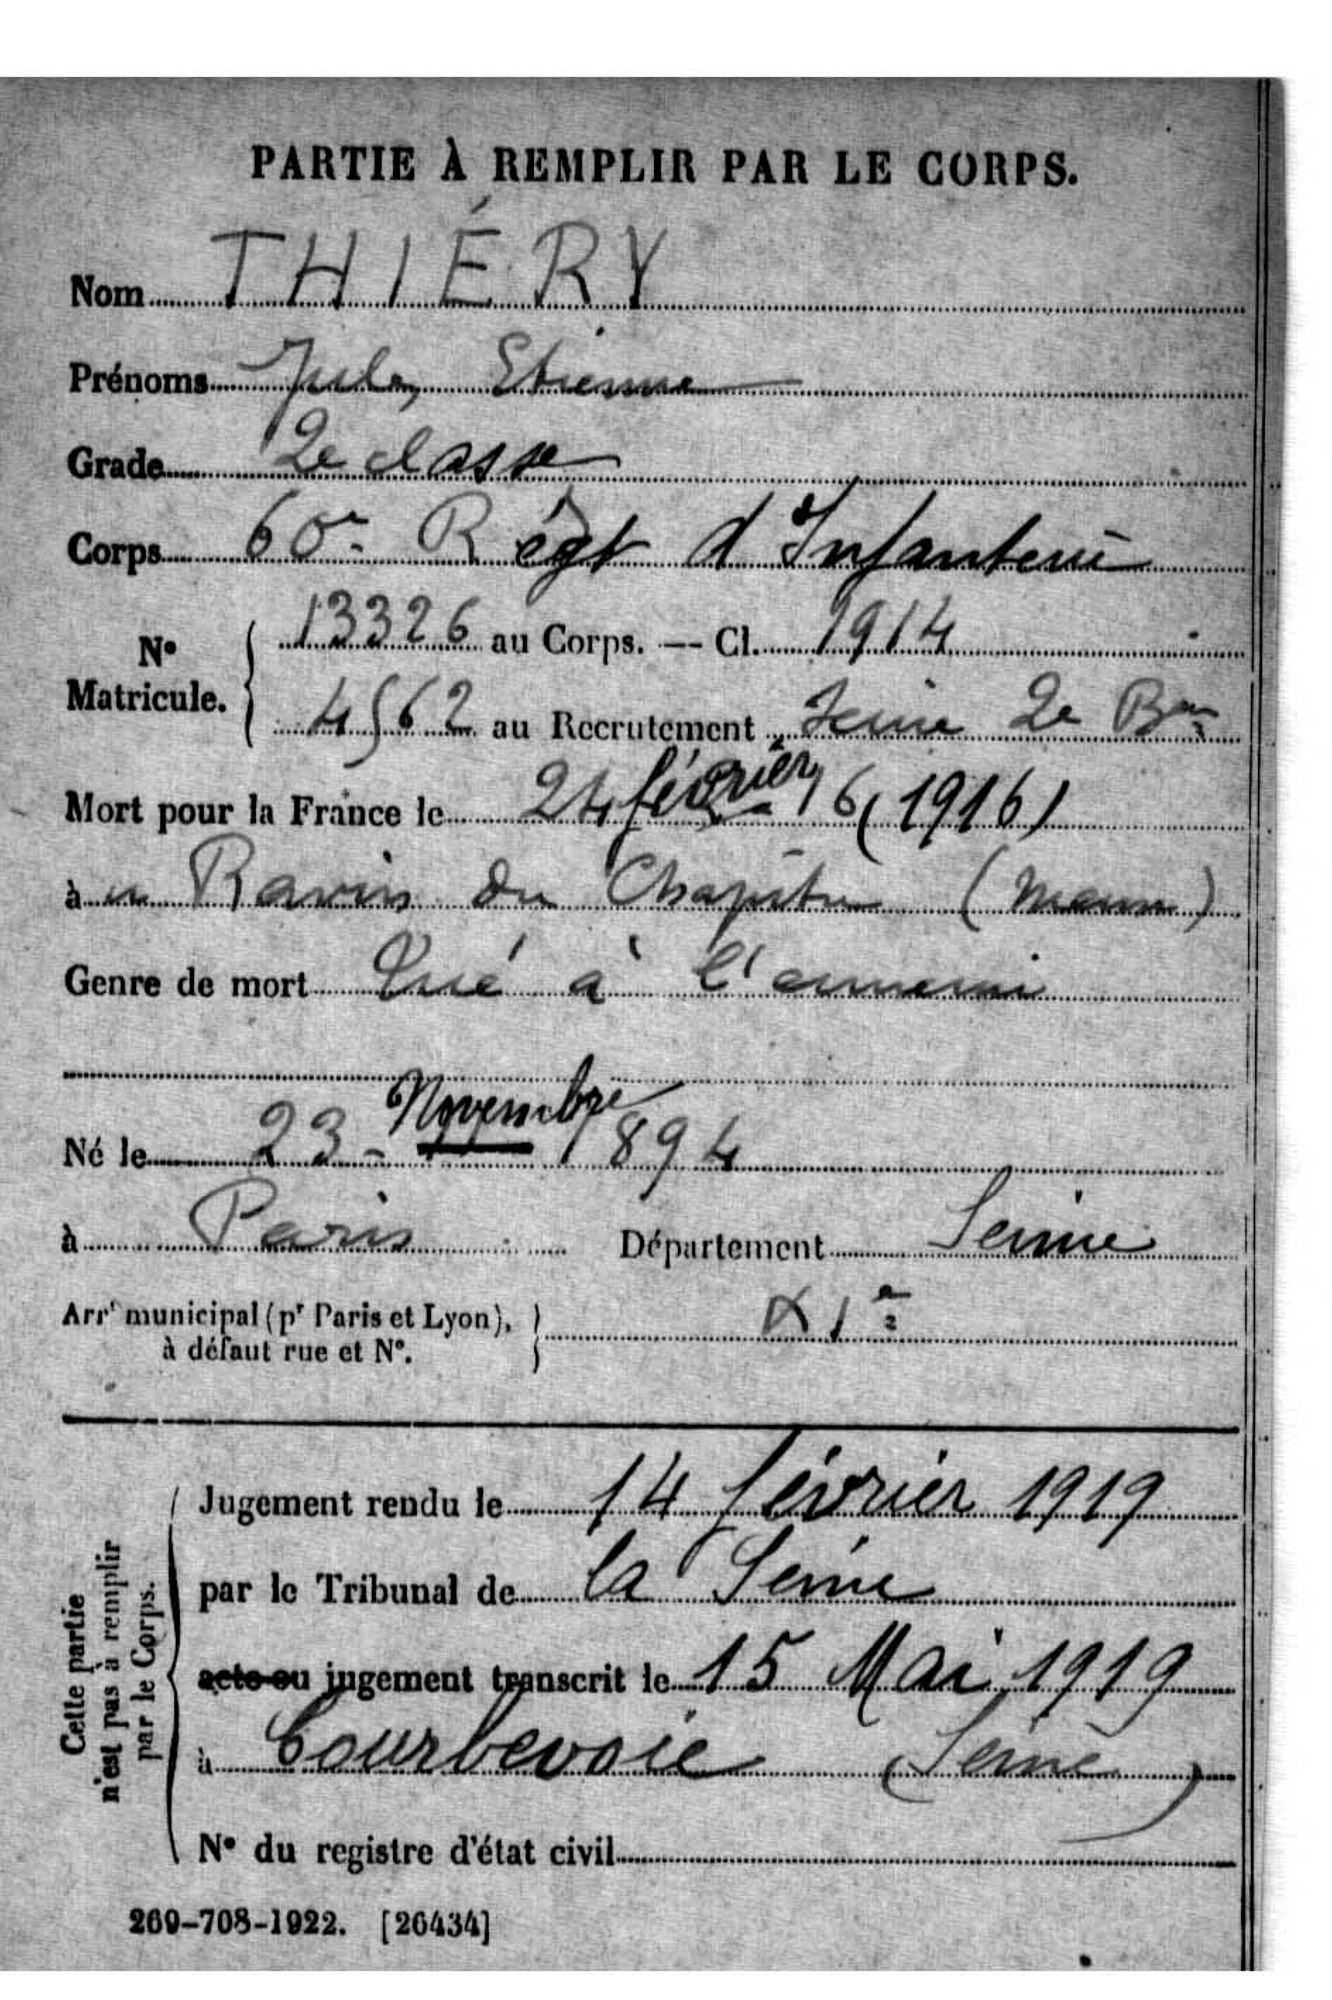 PARTIE À REMPLIR PAR LE CORPS.
Nom THIÉRY
Prénoms Jules, Etienne
Grade 2e classe
Corps 60e Régt d'Infanterie
N° Matricule. 13326 au Corps. — Cl. 1914
4562 au Recrutement Seine 2e Bau
Mort pour la France le 24 février 16 (1916)
à Ravin du Chapitre (Meuse)
Genre de mort Tué à l'ennemi
Né le 23 - Novembre 1894
à Paris Département Seine
Arrt municipal (pr Paris et Lyon), à défaut rue et N°. XIe
Cette partie n'est pas à remplir par le Corps.
Jugement rendu le 14 février 1919
par le Tribunal de la Seine
acte ou jugement transcrit le 15 Mai 1919
à Courbevoie (Seine)
N° du registre d'état civil
269-708-1922. [26434]